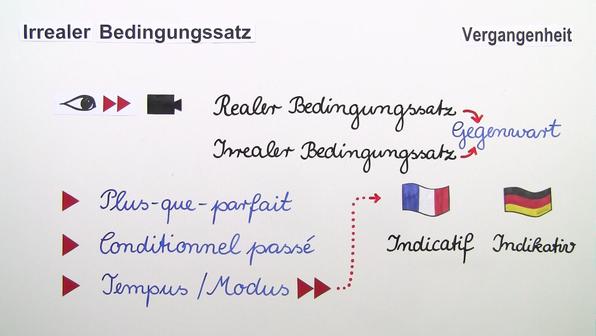 Irrealer Bedingungssatz
Vergangenheit
Realer Bedingungssatz
Gegenwart
Irrealer Bedingungssatz
Plus-que-parfait
Conditionnel passé
Indicatif
Indikativ
Tempus / Modus